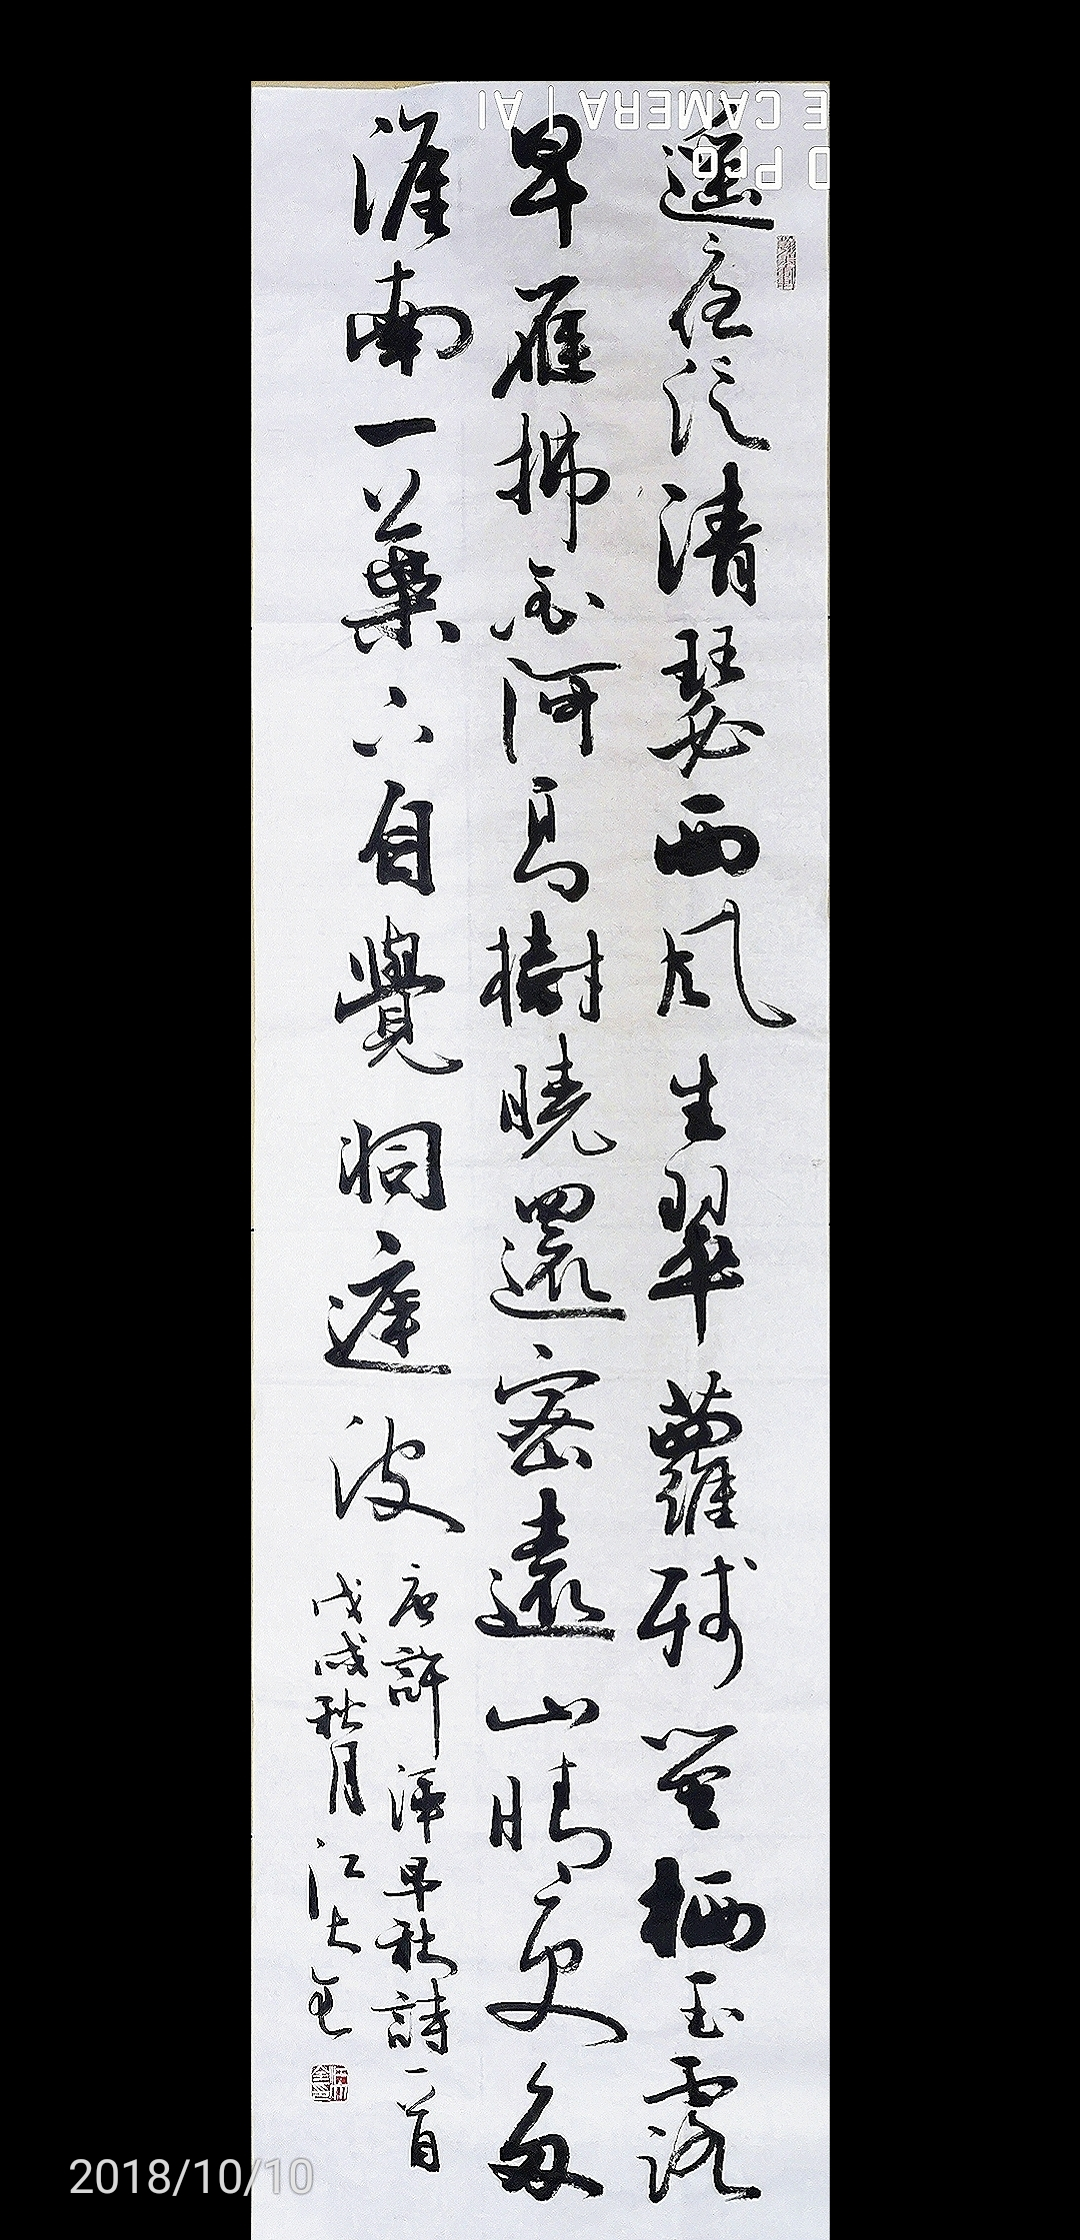 遙夜泛清瑟西風生翠蘿殘螢栖玉露
早雁拂金河高樹曉還密遠山晴更多
淮南一葉下自覺洞庭波
唐許渾早秋詩一首
戊戌秋月江大
D Pro
E CAMERA | AI
2018/10/10